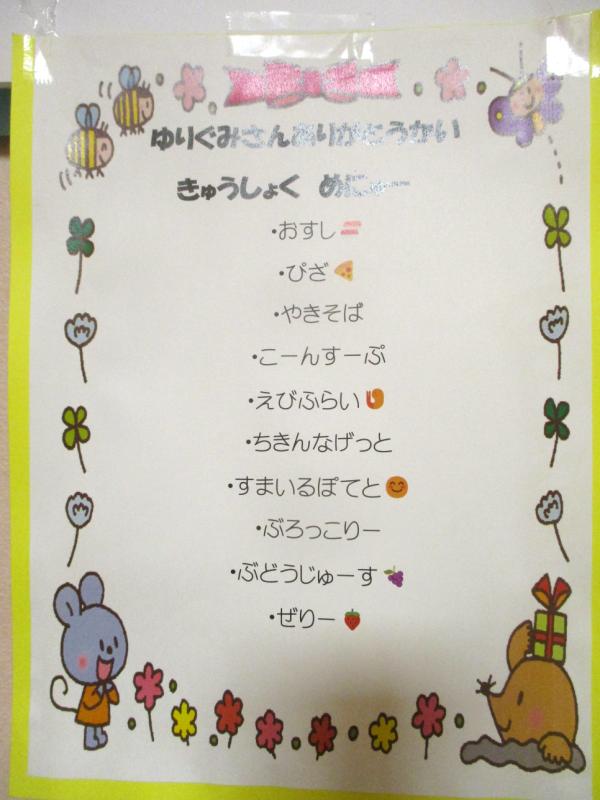 ゆりぐみさんありがとうかい
きゅうしょく めにゅー
・おすし
・ぴざ
・やきそば
・こーんすーぷ
・えびふらい
・ちきんなげっと
・すまいるぽてと
・ぶろっこりー
・ぶどうじゅーす
・ぜりー